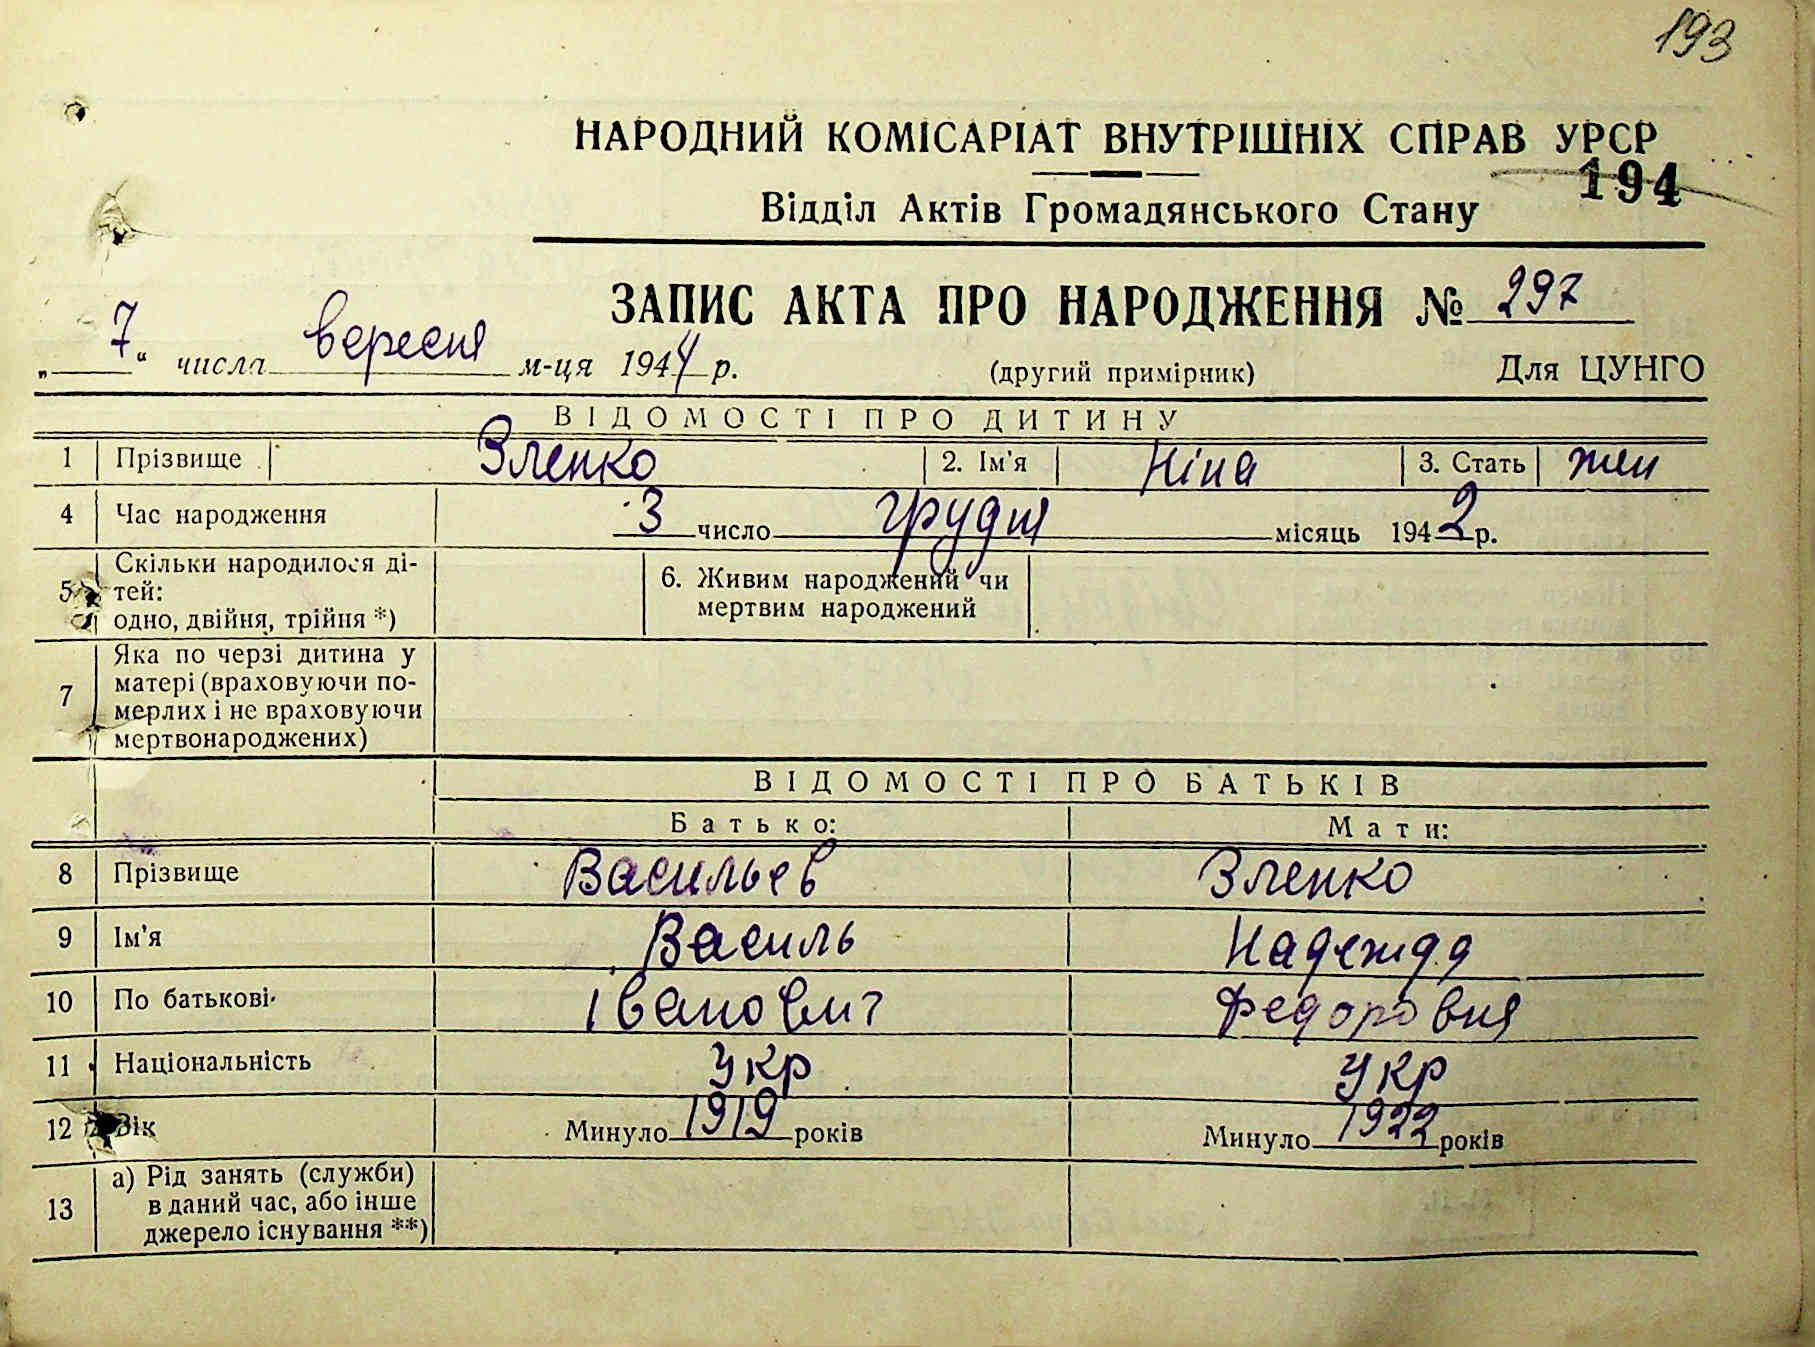 193
НАРОДНИЙ КОМІСАРІАТ ВНУТРІШНІХ СПРАВ УРСР
194
Відділ Актів Громадянського Стану
ЗАПИС АКТА ПРО НАРОДЖЕННЯ № 297
„7“ числа вересня м-ця 1944 р. (другий примірник) Для ЦУНГО
ВІДОМОСТІ ПРО ДИТИНУ
1 Прізвище Зленко 2. Ім'я Ніна 3. Стать жен
4 Час народження 3 число грудня місяць 1942 р.
5 Скільки народилося ді-
тей:
одно, двійня, трійня *)
6. Живим народжений чи
мертвим народжений
7 Яка по черзі дитина у
матері (враховуючи по-
мерлих і не враховуючи
мертвонароджених)
ВІДОМОСТІ ПРО БАТЬКІВ
Батько: Мати:
8 Прізвище Васильев Зленко
9 Ім'я Василь Надежда
10 По батькові Іванович Федоровня
11 Національність Укр Укр
12 Вік Минуло 1919 років Минуло 1922 років
13 а) Рід занять (служби)
в даний час, або інше
джерело існування **)